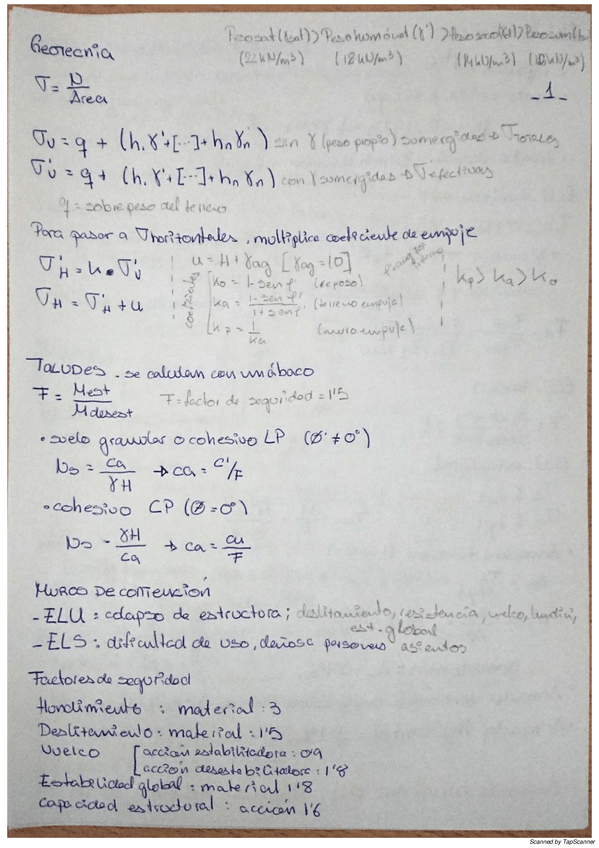 Geotecnia
Peso sat (γsat) > Peso húmedo (γ) > Peso seco (γd) > Peso sum (γsu
(22 kN/m³) (18 kN/m³) (14 kN/m³) (12 kN/m³)
σ = N / Area
-1-
σv = q + (h₁γ' + [...] + hnγn') sin γ (peso propio) sumergidas → σtotales
σ'v = q + (h₁γ' + [...] + hnγn) con γ sumergidas → σ'efectivas
q = sobrepeso del terreno
Para pasar a σhorizontales, multiplica coeficiente de empuje
σ'H = k · σ'v
u = H + γag [γag = 10]
σH = σ'H + u
k₀ = 1 - sen φ' (reposo)
ka = 1 - sen φ' / 1 + sen φ' (terreno empuja)
kp = 1 / ka (muro empuja)
kp > ka > k₀
TALUDES . se calculan con un ábaco
F = Mest / Mdesest
F = factor de seguridad = 1'5
• suelo granular o cohesivo LP (Ø' ≠ 0°)
Ns = ca / γH → ca = c'/F
• cohesivo CP (Ø = 0°)
Ns = γH / ca → ca = cu / F
MUROS DE CONTENCIÓN
- ELU : colapso de estructura; deslitamiento, resistencia, vuelco, hundim,
est. global
- ELS : dificultad de uso, daños a personas asientos
Factores de seguridad
Hundimiento : material : 3
Deslitamiento : material : 1'5
Vuelco [acción estabilitadora : 0'9
[acción desestabilitadora : 1'8
Estabilidad global : material 1'8
Capacidad estructural : acción 1'6
Scanned by TapScanner